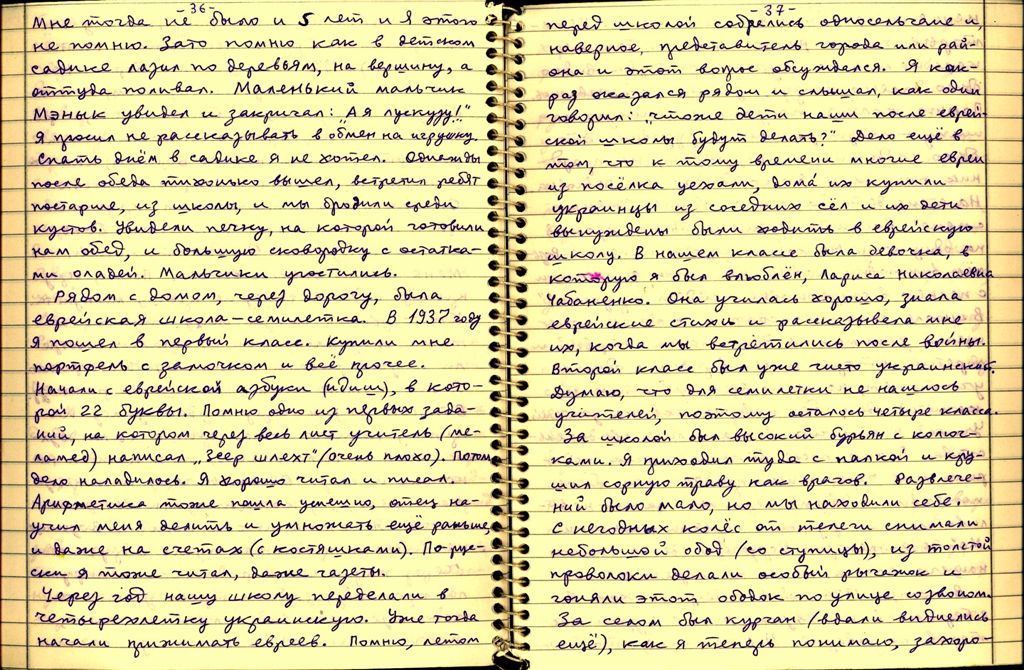 -36-
Мне тогда не было и 5 лет и я этого
не помню. Зато помню как в детском
садике лазил по деревьям, на вершину, а
оттуда поливал. Маленький мальчик
Мэнык увидел и закричал: "А я лускузу!"
Я просил не рассказывать в обмен на игрушку.
Спать днём в садике я не хотел. Однажды
после обеда тихонько вышел, встретил ребят
постарше, из школы, и мы бродили среди
кустов. Увидели печку, на которой готовили
нам обед, и большую сковородку с остатка-
ми оладей. Мальчики угостились.
Рядом с домом, через дорогу, была
еврейская школа-семилетка. В 1937 году
я пошел в первый класс. Купили мне
портфель с замочком и всё прочее.
Начали с еврейской азбуки (идиш), в кото-
рой 22 буквы. Помню одно из первых зада-
ний, на котором через весь лист учитель (ме-
ламед) написал "Зеер шлехт" (очень плохо). Потом
дело наладилось. Я хорошо читал и писал.
Арифметика тоже пошла успешно, отец на-
учил меня делить и умножать ещё раньше,
и даже на счетах (с костяшками). По рус-
ски я тоже читал, даже газеты.
Через год нашу школу переделали в
четырехлетку украинскую. Уже тогда
начали прижимать евреев. Помню, летом
-37-
перед школой собрались односельчане и,
наверное, представитель города или рай-
она и этот вопрос обсуждался. Я как-
раз оказался рядом и слышал, как один
говорил: "что же дети наши после еврей-
ской школы будут делать?" Дело ещё в
том, что к тому времени многие евреи
из посёлка уехали, дома их купили
украинцы из соседних сёл и их дети
вынуждены были ходить в еврейскую
школу. В нашем классе была девочка, в
которую я был влюблён, Лариса Николаевна
Чабаненко. Она училась хорошо, знала
еврейские стихи и рассказывала мне
их, когда мы встретились после войны.
Второй класс был уже чисто украинский.
Думаю, что для семилетки не нашлось
учителей, поэтому осталось четыре класса.
За школой был высокий бурьян с колюч-
ками. Я приходил туда с палкой и кру-
шил сорную траву как врагов. Развлече-
ний было мало, но мы находили себе.
С негодных колёс от телеги снимали
небольшой обод (со ступицы), из толстой
проволоки делали особый рычажок
гоняли этот ободок по улице со звоном.
За селом был курган (вдали виднелись
ещё), как я теперь понимаю, захоро-